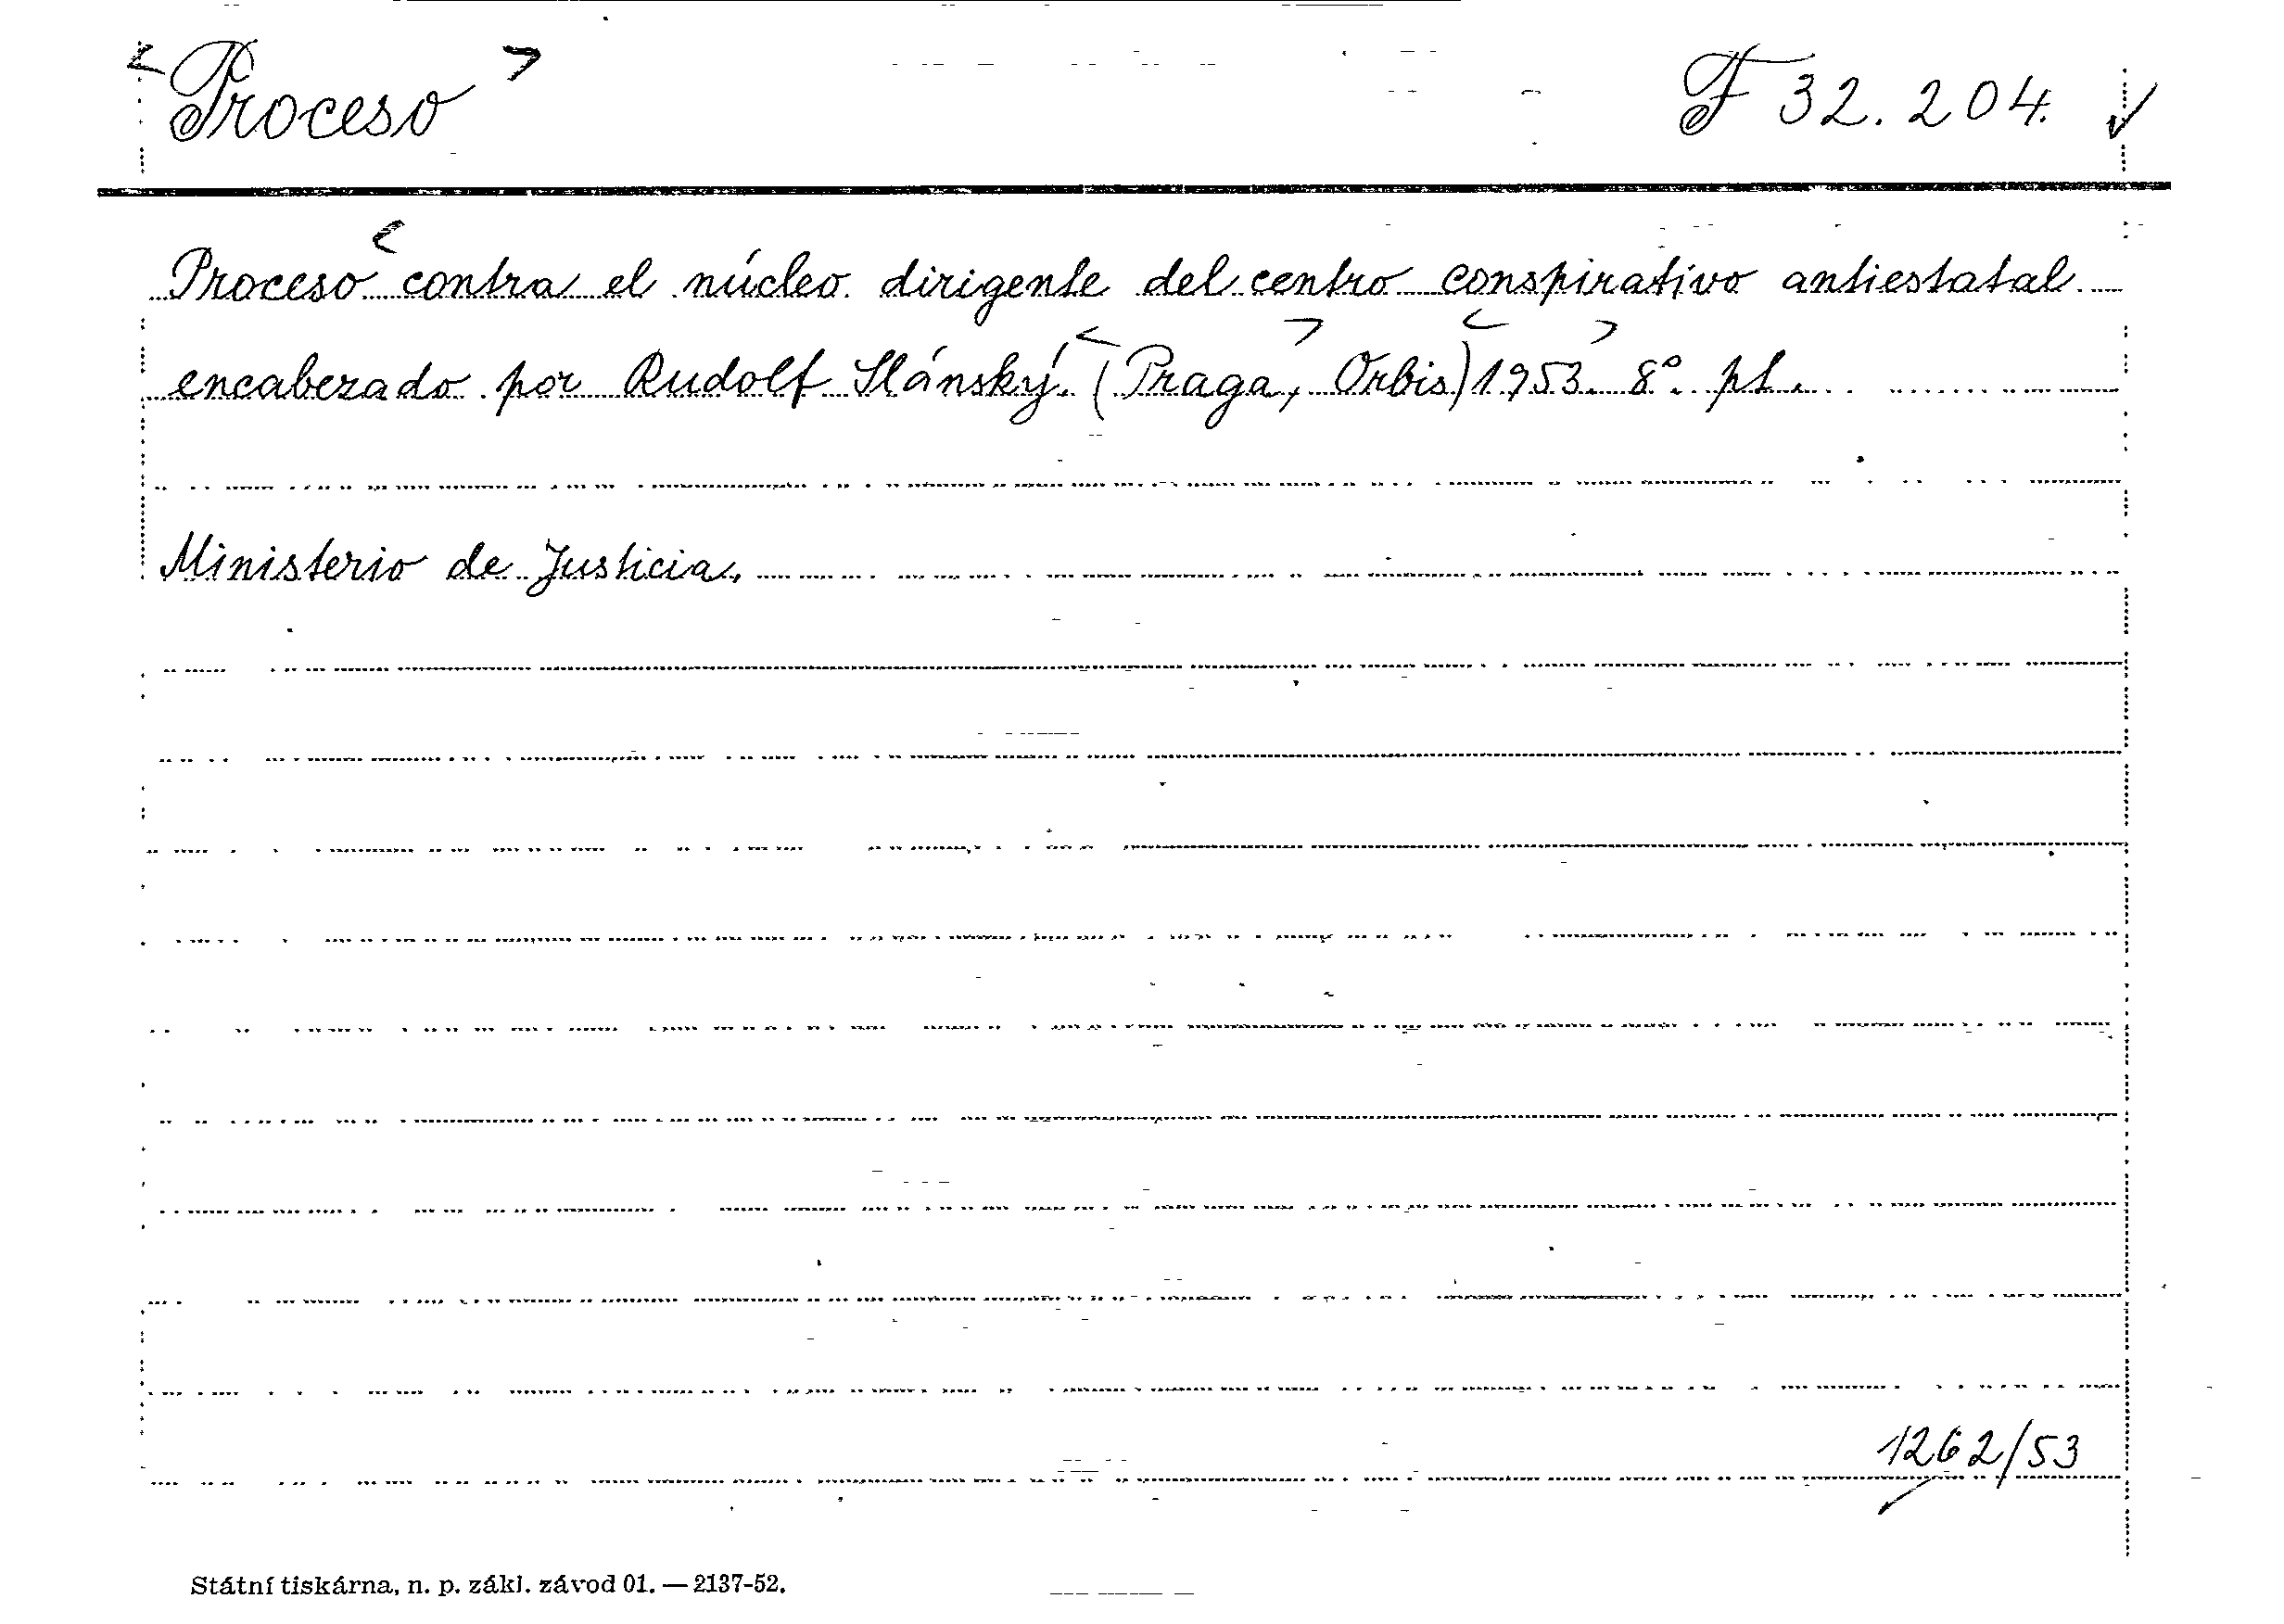 < Proceso > F 32.204. ✓
Proceso < contra el núcleo dirigente del centro conspirativo antiestatal
encabezado por Rudolf Slánský. < (Praga, > Orbis) < 1953. > 8°. pl.
Ministerio de Justicia.
1262/53
Státní tiskárna, n. p. zákl. závod 01. — 2137-52.